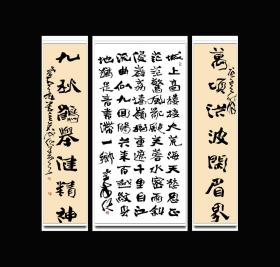 萬頃洪波闊眉界
城上高樓接大荒海天愁思正
茫茫驚風亂颭芙蓉水密雨斜
侵薜荔墙嶺樹重遮千里目江
流曲似九回腸共来百越文身
地猶自音書滯一鄉
九秋鶴舉健精神